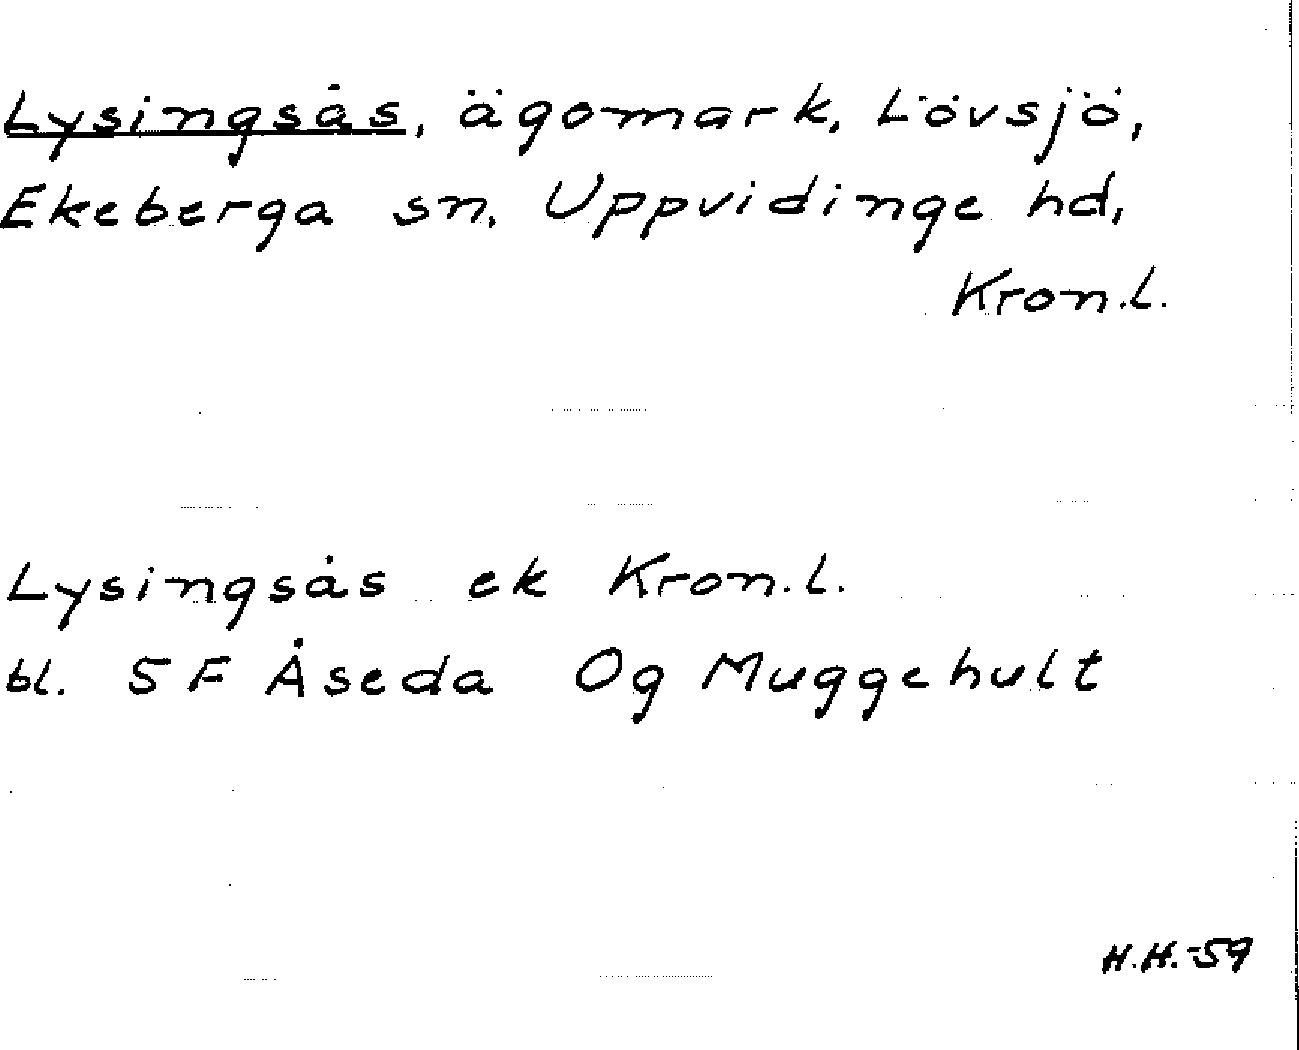 Lysingsås, ägomark, Lövsjö,
Ekeberga sn, Uppvidinge hd,
Kron.l.
Lysingsås ek Kron.l.
bl. 5F Åseda Og Muggehult
H.H.-59